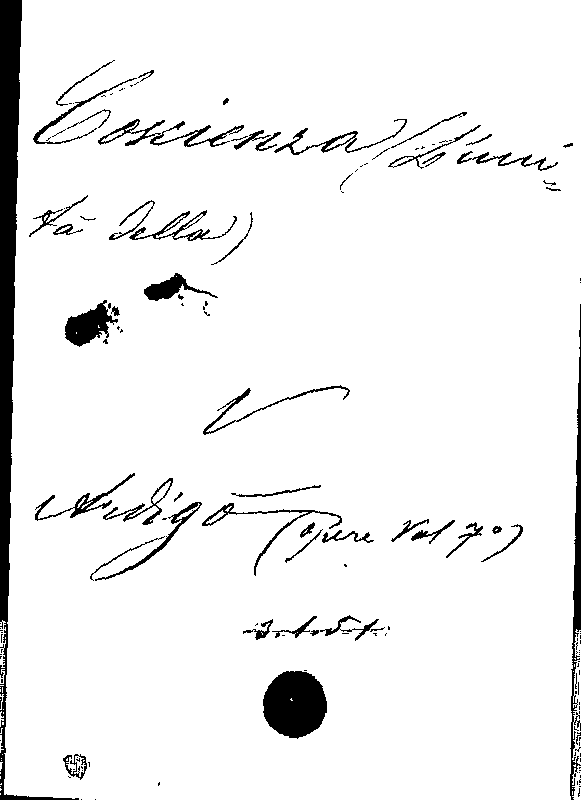 Coscienza (L'uni=
tà della)
V
Ardigò (Opere Vol 7°)